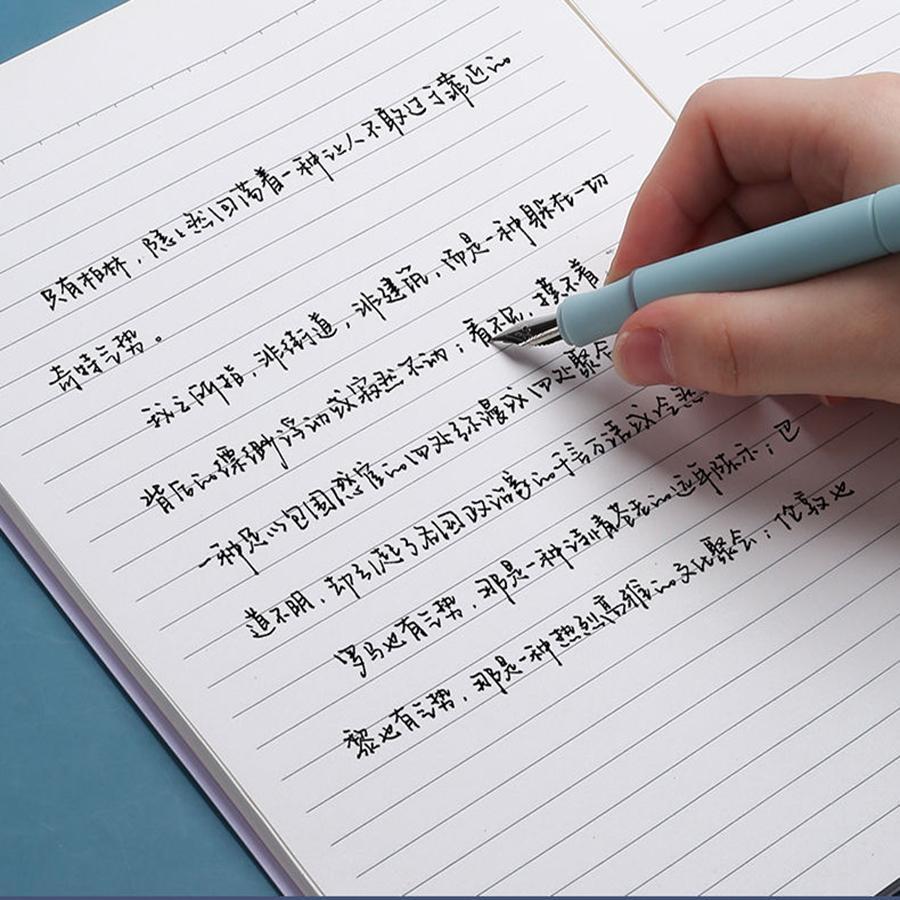 只有柏林，隐隐然回荡着一种让人不敢过于靠近的
奇特气势。
我之所指，非街道，非建筑，而是一种躲在一切
背后的缥缈浮动或寂然不动；看不见，摸不着
一种足以包围感官的四处弥漫或四处聚合
道不明，却引起了各国政治家的千言万语或冷然
罗马也有气势，那是一种诗情苍老的远年陈示；巴
黎也有气势，那是一种热烈高雅的文化聚会；伦敦也